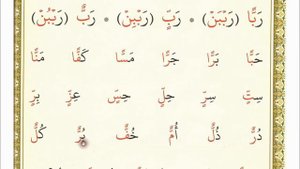 رَبًّا (رَبْبَنْ) * رَبٍّ (رَبْبِنْ) * رَبٌّ (رَبْبُنْ)
حَبًّا بَرًّا جَرًّا مَسًّا كَفًّا مَنًّا
سِتٍّ سِرٍّ حِلٍّ حِسٍّ عِزٍّ بِرٍّ
دُرٌّ ذُلٌّ أُمٌّ خُفٌّ بُرٌّ كُلٌّ